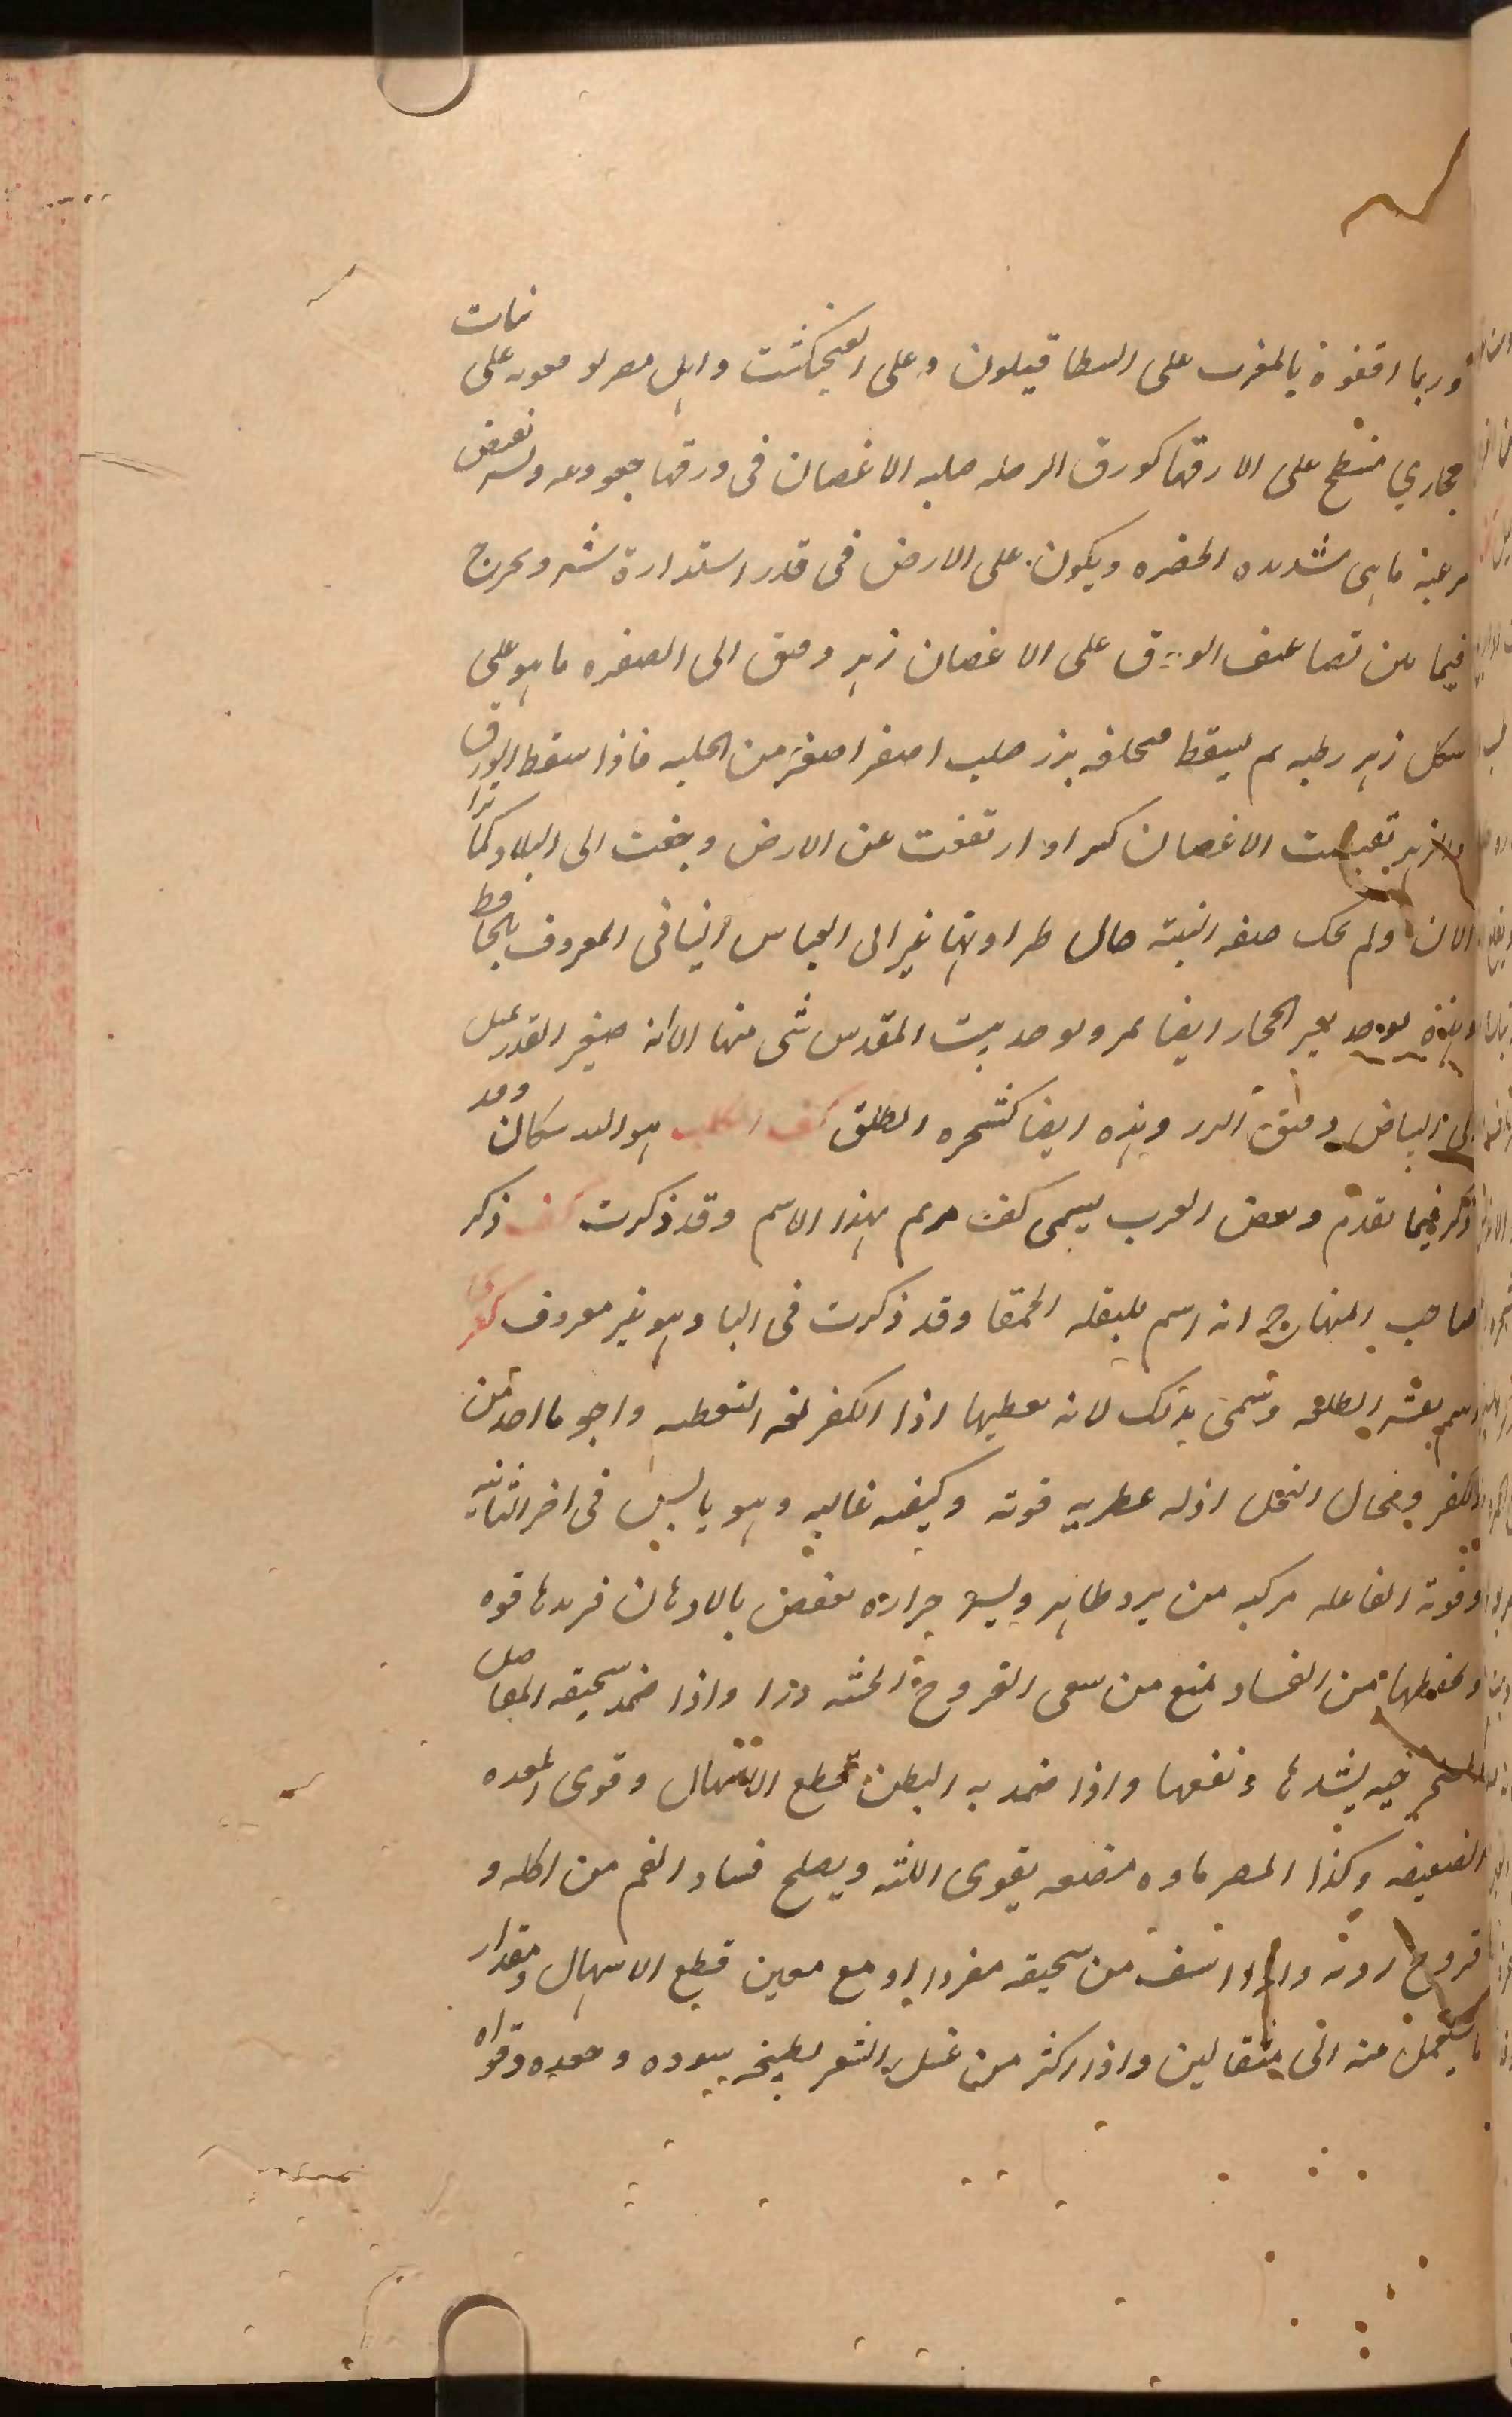 وربما اوقعوه بالمغرب على البنطافيلون وعلى الفنجنكشت واهل مصر يوقعونه على نبات
حجازي منسطح على الارض ورقها كورق الرجله صلبه الاغصان في ورقها جعودة وله بعض
زغب ماهي شديده الخضره ويكون على الارض في قدر استدارة شبر ويخرج
فيما بين تضاعيف الورق على الاغصان زهر دقيق الى الصفره ما هو على
شكل زهر رطبه ثم يسقط فيخلفه بزر صلب اصفر اصغر من الحلبه فاذا سقط الورق
والزهر تقبضت الاغصان كبرا وارتفعت عن الارض وجفت الى البلاد كما نرا
الان ولم يحك صفه النبته حال طراوتها غير ابي العباس النباتي المعروف بالحافظ
وهذه توجد بغير الحجاز ايضا ويوجد ببيت المقدس شي منها الا انه صغير القدر يميل
الى البياض دقيق الورد وهذه ايضا كشجره الطلق كف الكلب هو البدسكان وقد
ذكر فيما تقدم وبعض العرب يسمي كف مريم بهذا الاسم وقد ذكرت كف ذكر
صاحب المنهاج انه اسم للبقله الحمقا وقد ذكرت في البا وهو غير معروف كفر
اسم لقشر الطلعه وتسمى بذلك لانه يغطيها اذا الكفر لغه التغطيه واجود ما اخذ من
الكفر وفحال النخل اذله عطريه قوته وكيفيه غالبه وهو يابس في اخر الثانيه
وقوته الفاعله مركبه من برد ظاهر ويسير حراره يعفص بالادهان فيزيدها قوه
ويحفظها من الفساد يمنع من سعى القروح الخبيثه ذرا واذا ضمد بسحيقه المفاصل
المسترخيه يشدها ونفعها واذا ضمد به البطن قطع الاسهال وقوى المعده
الضعيفه وكذا المصر ماوه مضغه يقوى اللثه ويصلح فساد الفم من اكله و
قروح رديه واذا استف من سحيقه مفردا او مع معين قطع الاسهال ومقدار
ما يستعمل منه الى مثقالين واذا اكثر من غسل الشعر بطبيخه يسوده وجعده وقواه